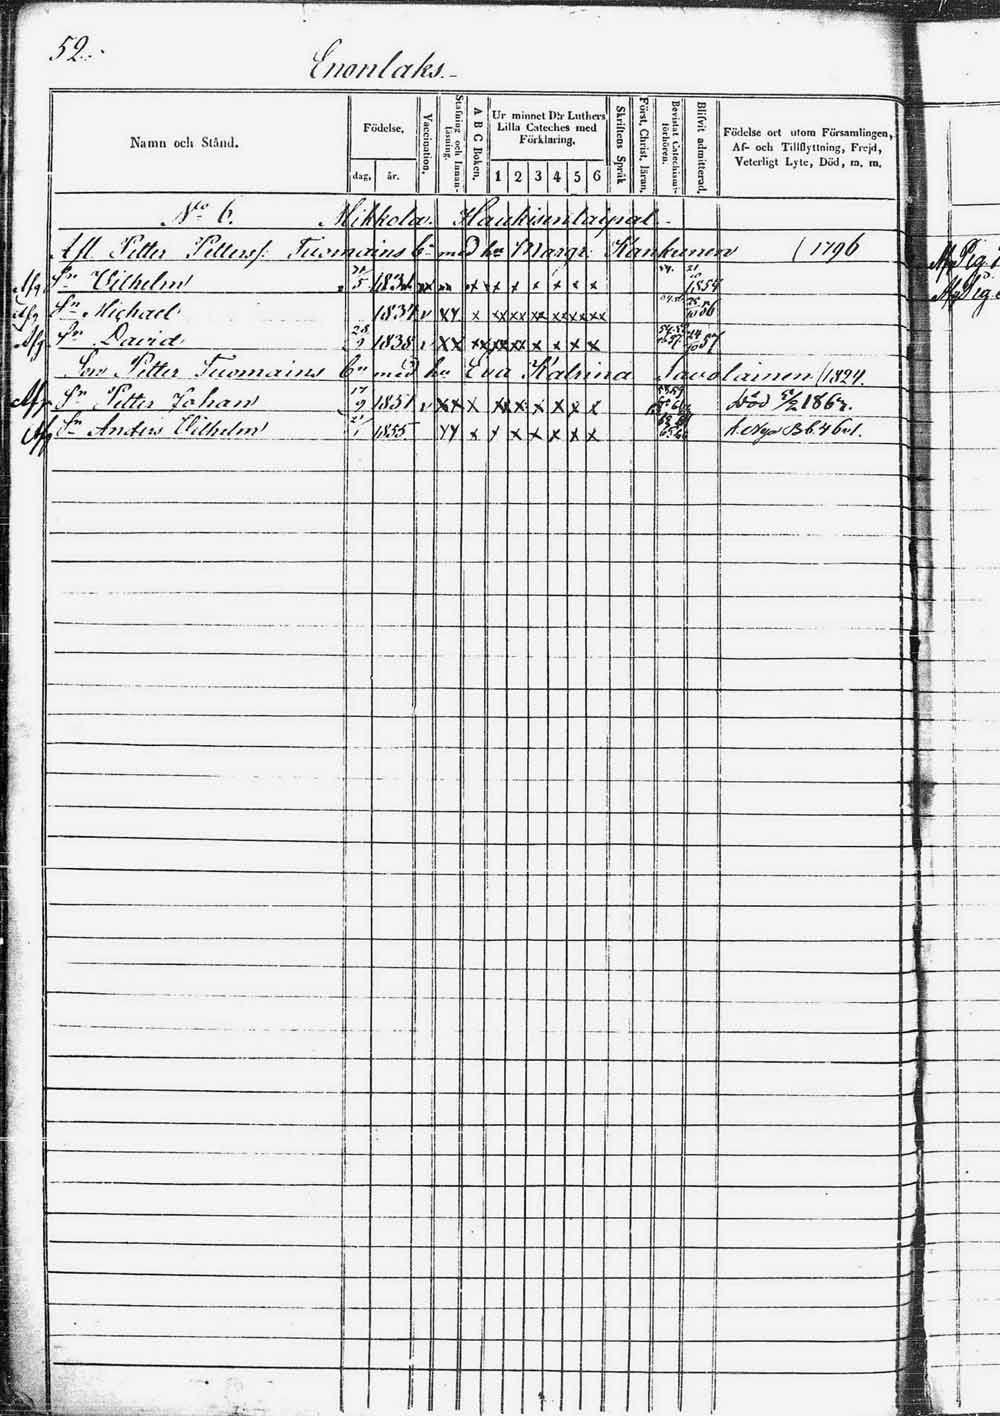 52.
Enonlaks.
Namn och Stånd.
Födelse.
dag. år.
Vaccination.
Stafning och Innanläsning.
A B C Boken.
Ur minnet D:r Luthers Lilla Cateches med Förklaring.
1 2 3 4 5 6
Skriftens Språk
Förel. Christ. läran.
Bevistat Catechismiförhören.
Blifvit admitterad.
Födelse ort utom Församlingen, Af- och Tillflyttning, Frejd, Veterligt Lyte, Död, m. m.
N:o 6. Mikkola Haukisentaipal
Afl. Petter Petterss: Tuomainens med hu Margr: Kankunen (1796
Afg Sn Vilhelm 5 1831 x x x x x x 1854
Afg Sn Michael 1834 xx x xx xx xx xx xx xx 56
Afg Sn David 28 1838 xx xx xx xx x x x x 57
Son Petter Tuomainens med hu Eva Katrina Savolainen (1824.
Afg Sn Petter Johan 17 9 1851 xx x xx x x x x x död 5/2 1867.
Afg Sn Anders Vilhelm 1855 xx x x x x x x x